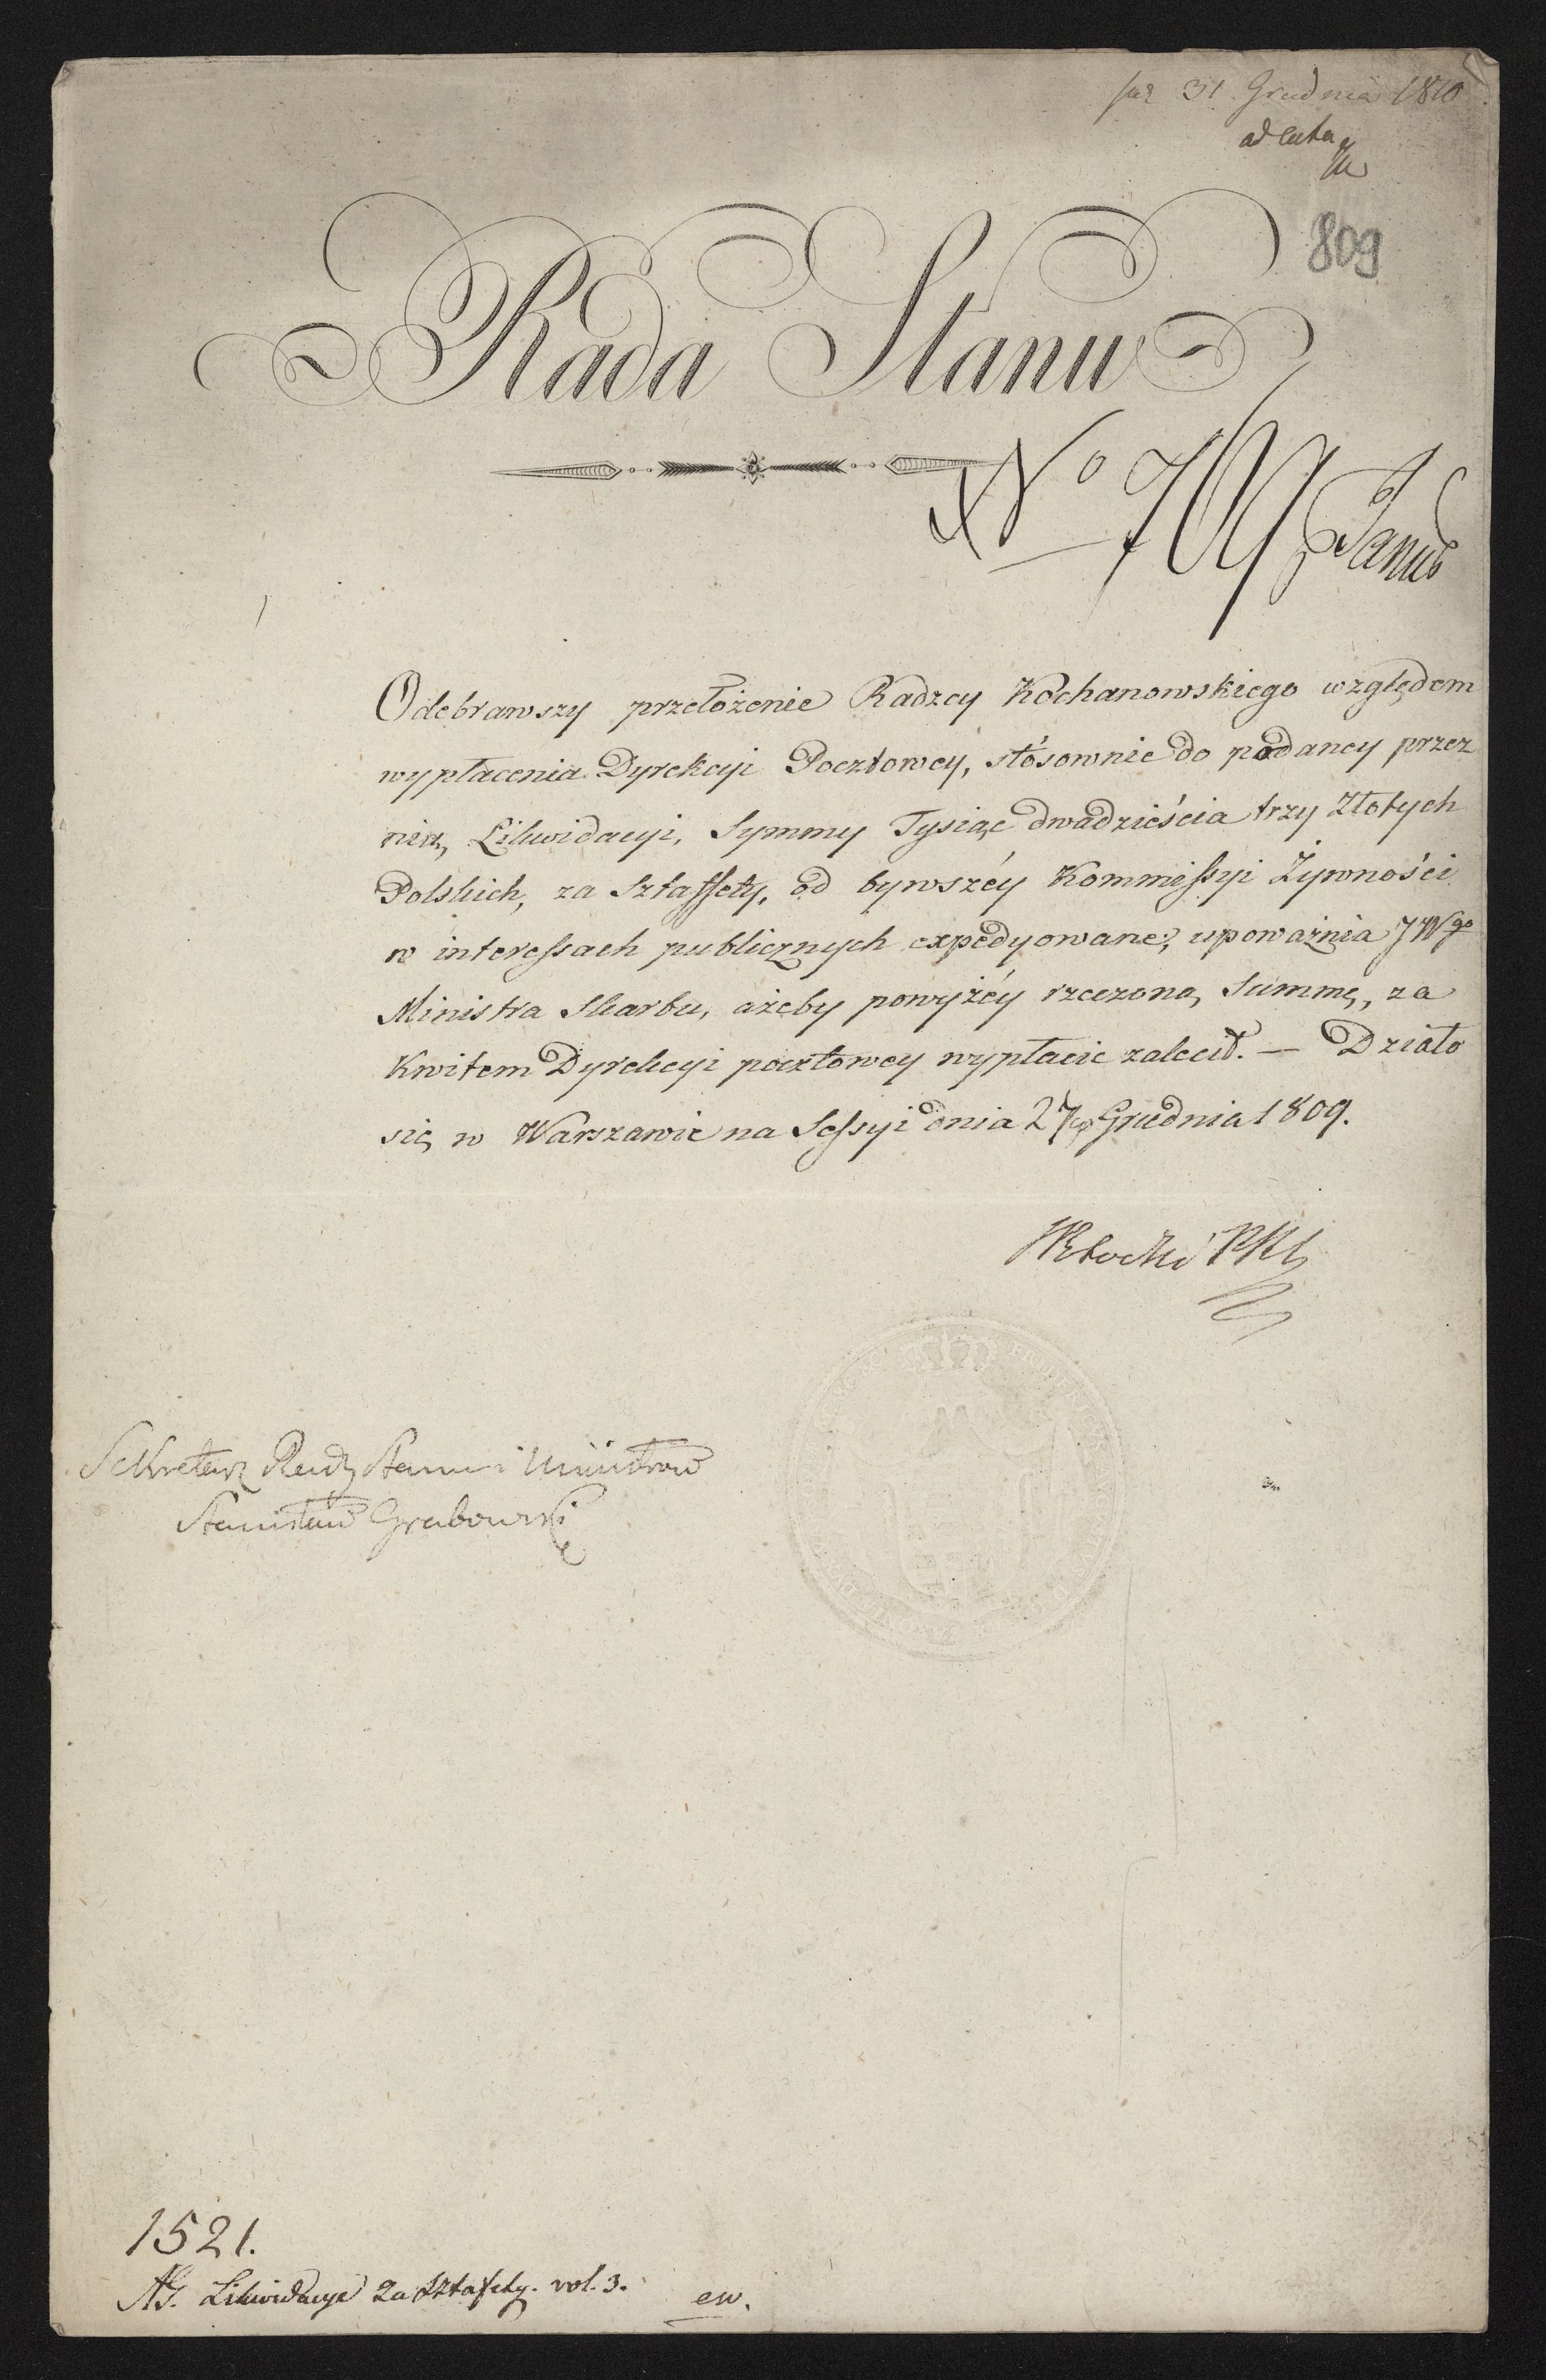 31 Grudnia 1810
ad acta
809
Rada Stanu
No
Odebrawszy przełożenie Radzcy Kochanowskiego względem
wypłacenia Dyrekcyi Pocztowey, stósownie do podaney przez
nią, Likwidacyi, Symmy Tysiąc dwadzieścia trzy Złotych
Polskich, za Sztaffety, od bywszéy Kommissyi Żywności
w interessach publicznych expedyowane, upoważnia JWgo
Ministra Skarbu, ażeby powyżéy rzeczoną Summę, za
Kwitem Dyrekcyi pocztowey wypłacić zalecił. — Działo
się w Warszawie na Sessyi dnia 27 Grudnia 1809.
Sekretarz Rady Stanu i Ministrów
Stanisław Grabowski
1521.
Likwidacye za Sztafety. vol. 3.
ew.